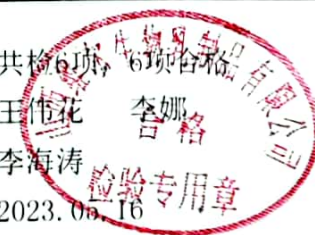 共检6项，6项合格
王伟花 李娜
李海涛
2023.05.16
合格
检验专用章